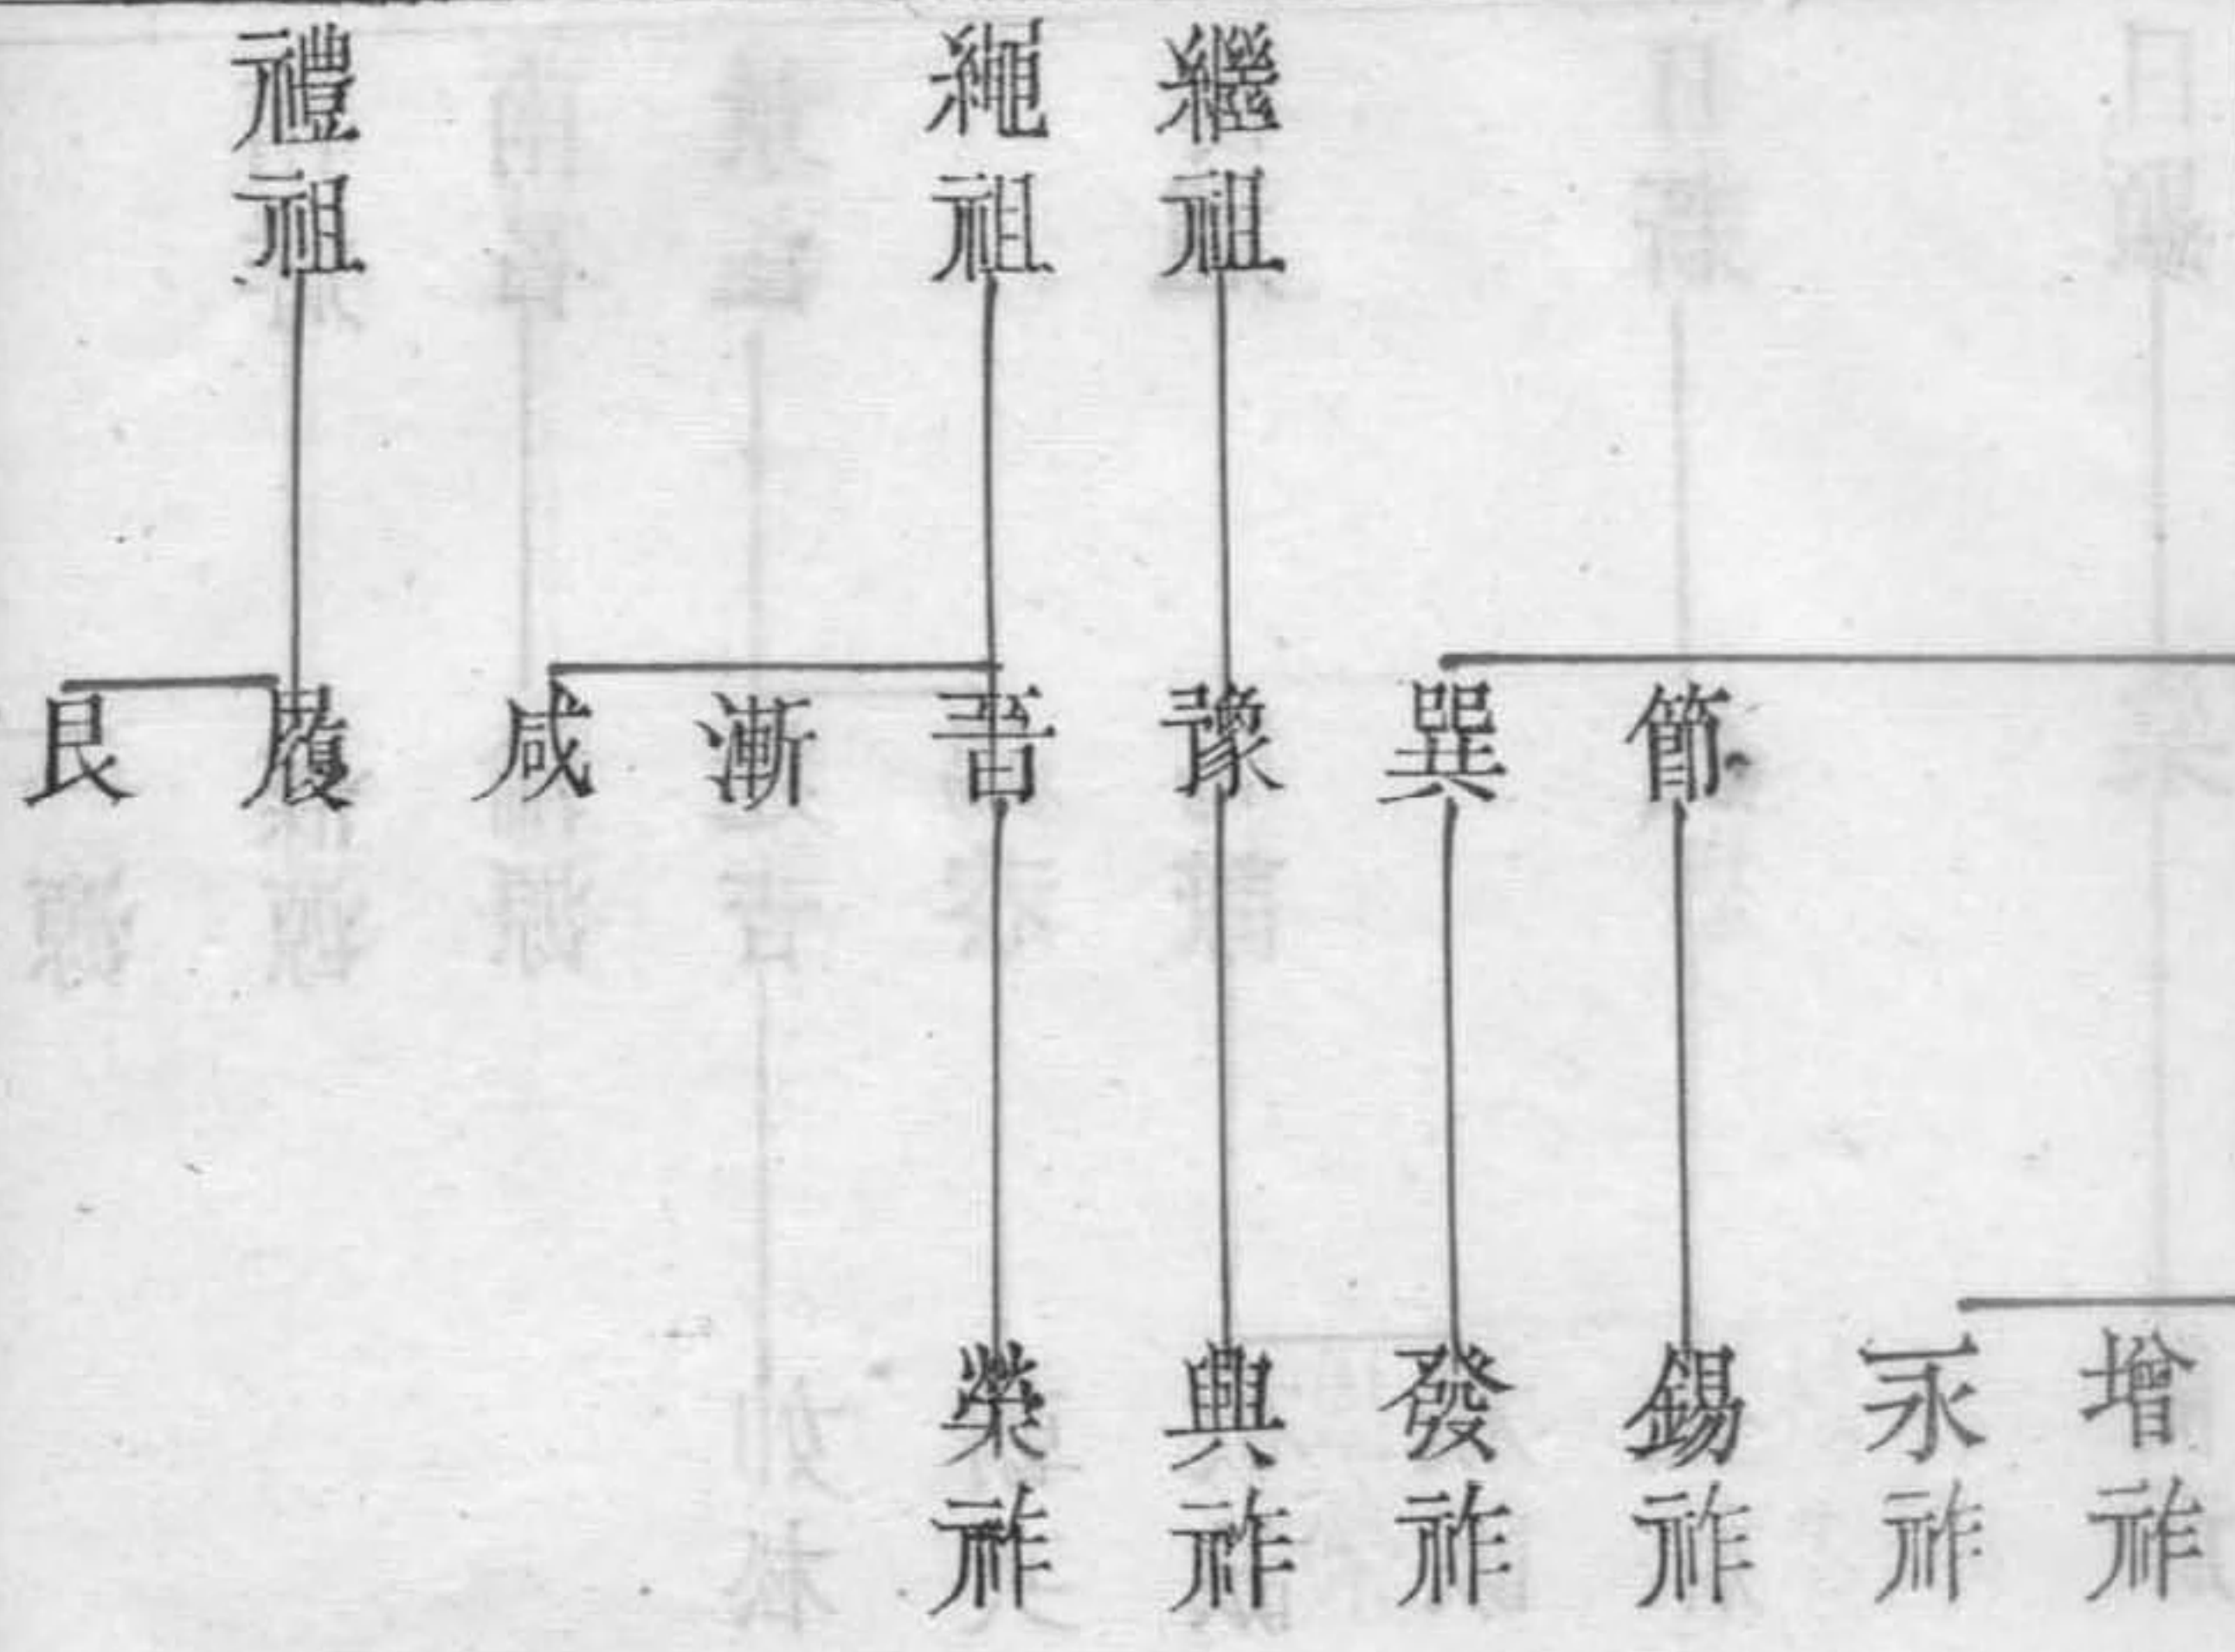 繼祖
繩祖
禮祖
節
巽
豫
晉
漸
咸
履
艮
增祚
永祚
錫祚
發祚
興祚
榮祚